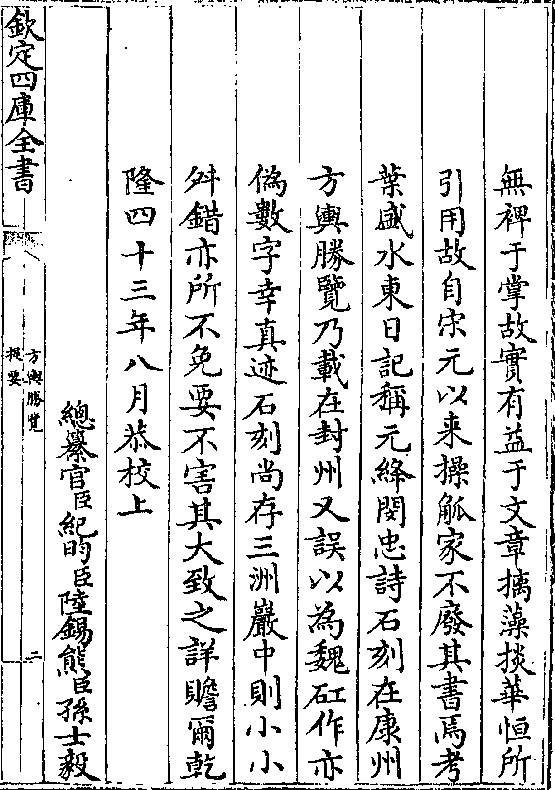 無裨于掌故實有益于文章摛藻掞華恒所
引用故自宋元以来操觚家不廢其書焉考
葉盛水東日記稱元絳閔忠詩石刻在康州
方輿勝覽乃載在封州又誤以為魏矼作亦
偽數字幸真迹石刻尚存三洲巖中則小小
舛錯亦所不免要不害其大致之詳贍爾乾
隆四十三年八月恭校上
總纂官臣紀昀臣陸錫熊臣孫士毅
欽定四庫全書
方輿勝覽
提要
二